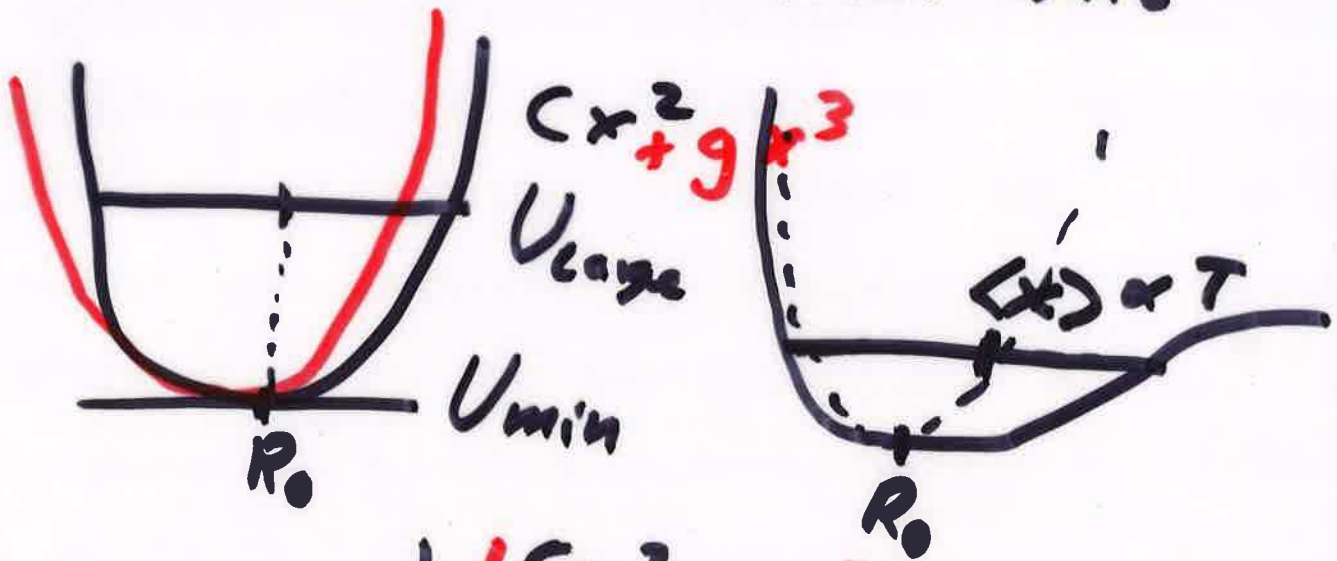 Cx² + g x³
U large
⟨x⟩ ∝ T
U min
R₀
R₀